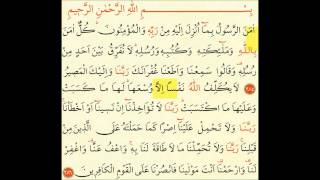 بِسْــــــمِ اللّٰهِ الرَّحْمٰنِ الرَّحِيمِ
اٰمَنَ الرَّسُولُ بِمَٓا اُنْزِلَ اِلَيْهِ مِنْ رَبِّهِ وَالْمُؤْمِنُونَ كُلٌّ اٰمَنَ
بِاللّٰهِ وَمَلٰٓئِكَتِهِ وَكُتُبِهِ وَرُسُلِهِ لَا نُفَرِّقُ بَيْنَ اَحَدٍ مِنْ
رُسُلِهِ وَقَالُوا سَمِعْنَا وَاَطَعْنَا غُفْرَانَكَ رَبَّنَا وَاِلَيْكَ الْمَصِيرُ
﴿٢٨٥﴾ لَا يُكَلِّفُ اللّٰهُ نَفْسًا اِلَّا وُسْعَهَا لَهَا مَا كَسَبَتْ
وَعَلَيْهَا مَا اكْتَسَبَتْ رَبَّنَا لَا تُؤَاخِذْنَٓا اِنْ نَسِينَٓا اَوْ اَخْطَاْنَا
رَبَّنَا وَلَا تَحْمِلْ عَلَيْنَٓا اِصْرًا كَمَا حَمَلْتَهُ عَلَى الَّذِينَ مِنْ
قَبْلِنَا رَبَّنَا وَلَا تُحَمِّلْنَا مَا لَا طَاقَةَ لَنَا بِهِ وَاعْفُ عَنَّا وَاغْفِرْ
لَنَا وَارْحَمْنَا اَنْتَ مَوْلٰينَا فَانْصُرْنَا عَلَى الْقَوْمِ الْكَافِرِينَ ﴿٢٨٦﴾